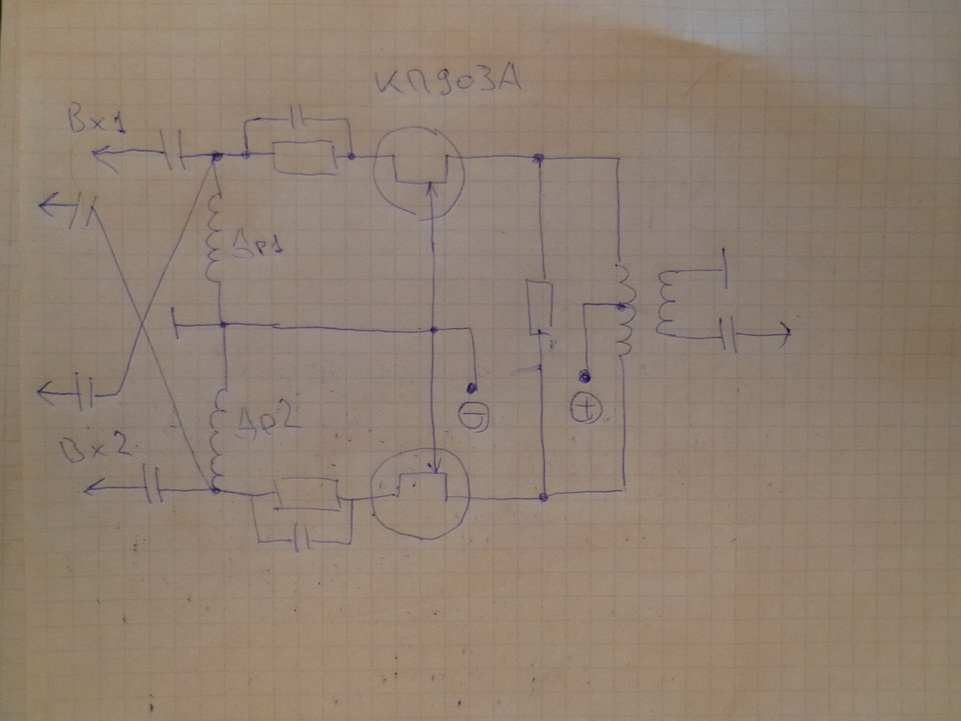 КП903А
Вх1
Др1
Др2
Вх2
−
+